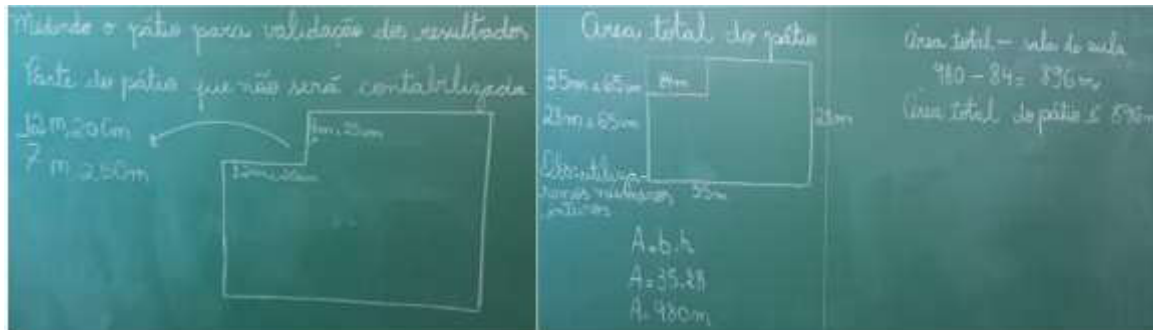 Medindo o pátio para validação dos resultados
Parte do pátio que não será contabilizada
12m,20cm
7m,260m
12m,20cm
Área total do pátio
35m,65cm
28m,65cm
28m
35m
A=b.h
A=35.28
A=980m
Área total - sala de aula
980-84=896m
Área total do pátio é 896m